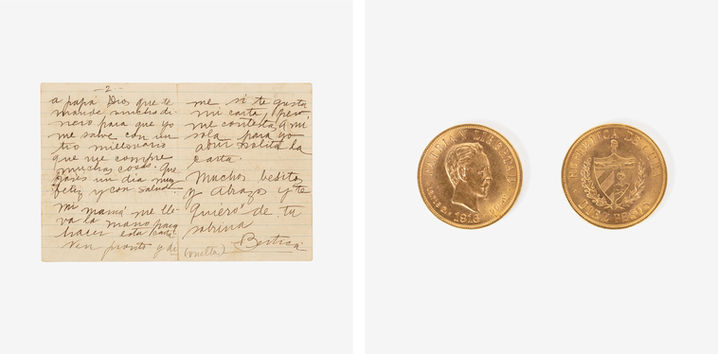 -2-
a papá Dios que te
mande mucho di-
nero para que yo
me salve con un
tio millonario
que me compre
muchas cosas. Que
pases un dia muy
feliz y con salud.
Mi mamá me lle-
va la mano para
hacer esta carta.
Ven pronto y di
me si te gusta
mi carta, pero
me contestas a mi
sola para yo
abrir solita la
carta.
Muchos besitos
y abrazos y te
quiero de tu
sobrina
Bertica
(vuelta)
PATRIA Y LIBERTAD
REPUBLICA DE CUBA
DIEZ PESOS